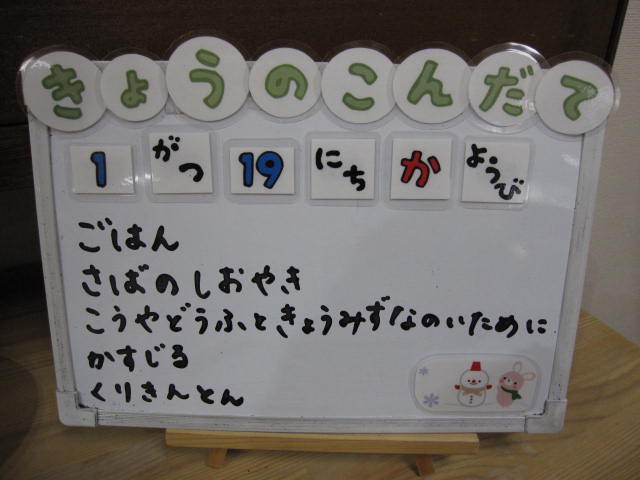 きょうのこんだて
1 がつ 19 にち か ようび
ごはん
さばのしおやき
こうやどうふときょうみずなのいために
かすじる
くりきんとん